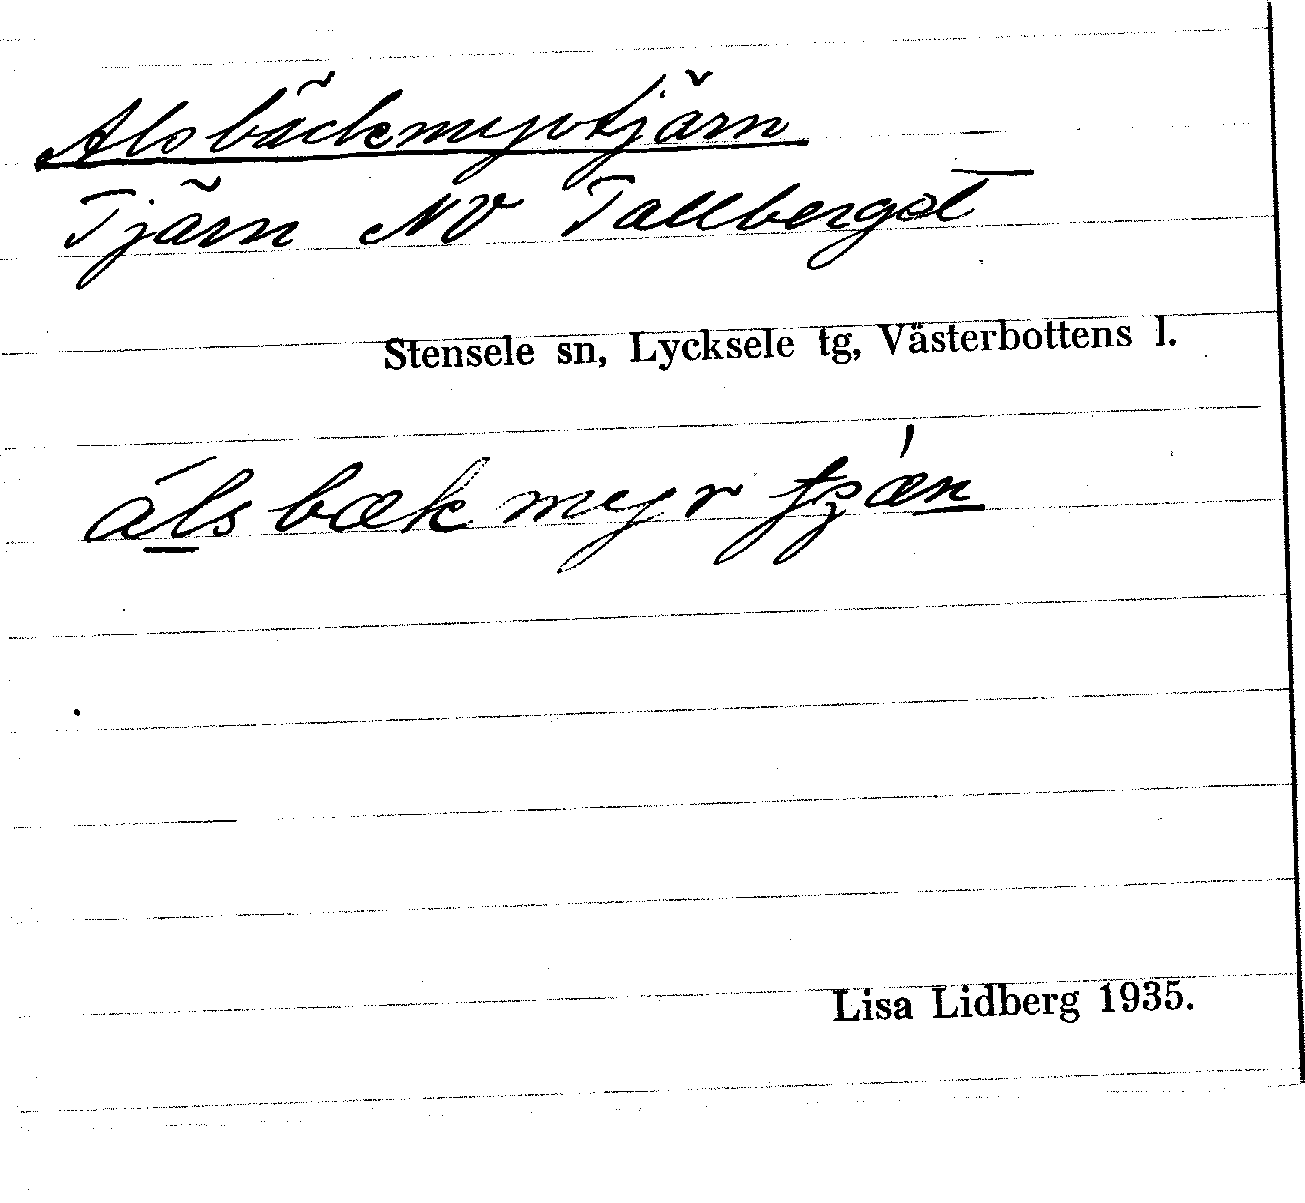 Alsbäckmyrtjärn
Tjärn NV Tallberget
Stensele sn, Lycksele tg, Västerbottens l.
álsbækmyrtjæn
Lisa Lidberg 1935.